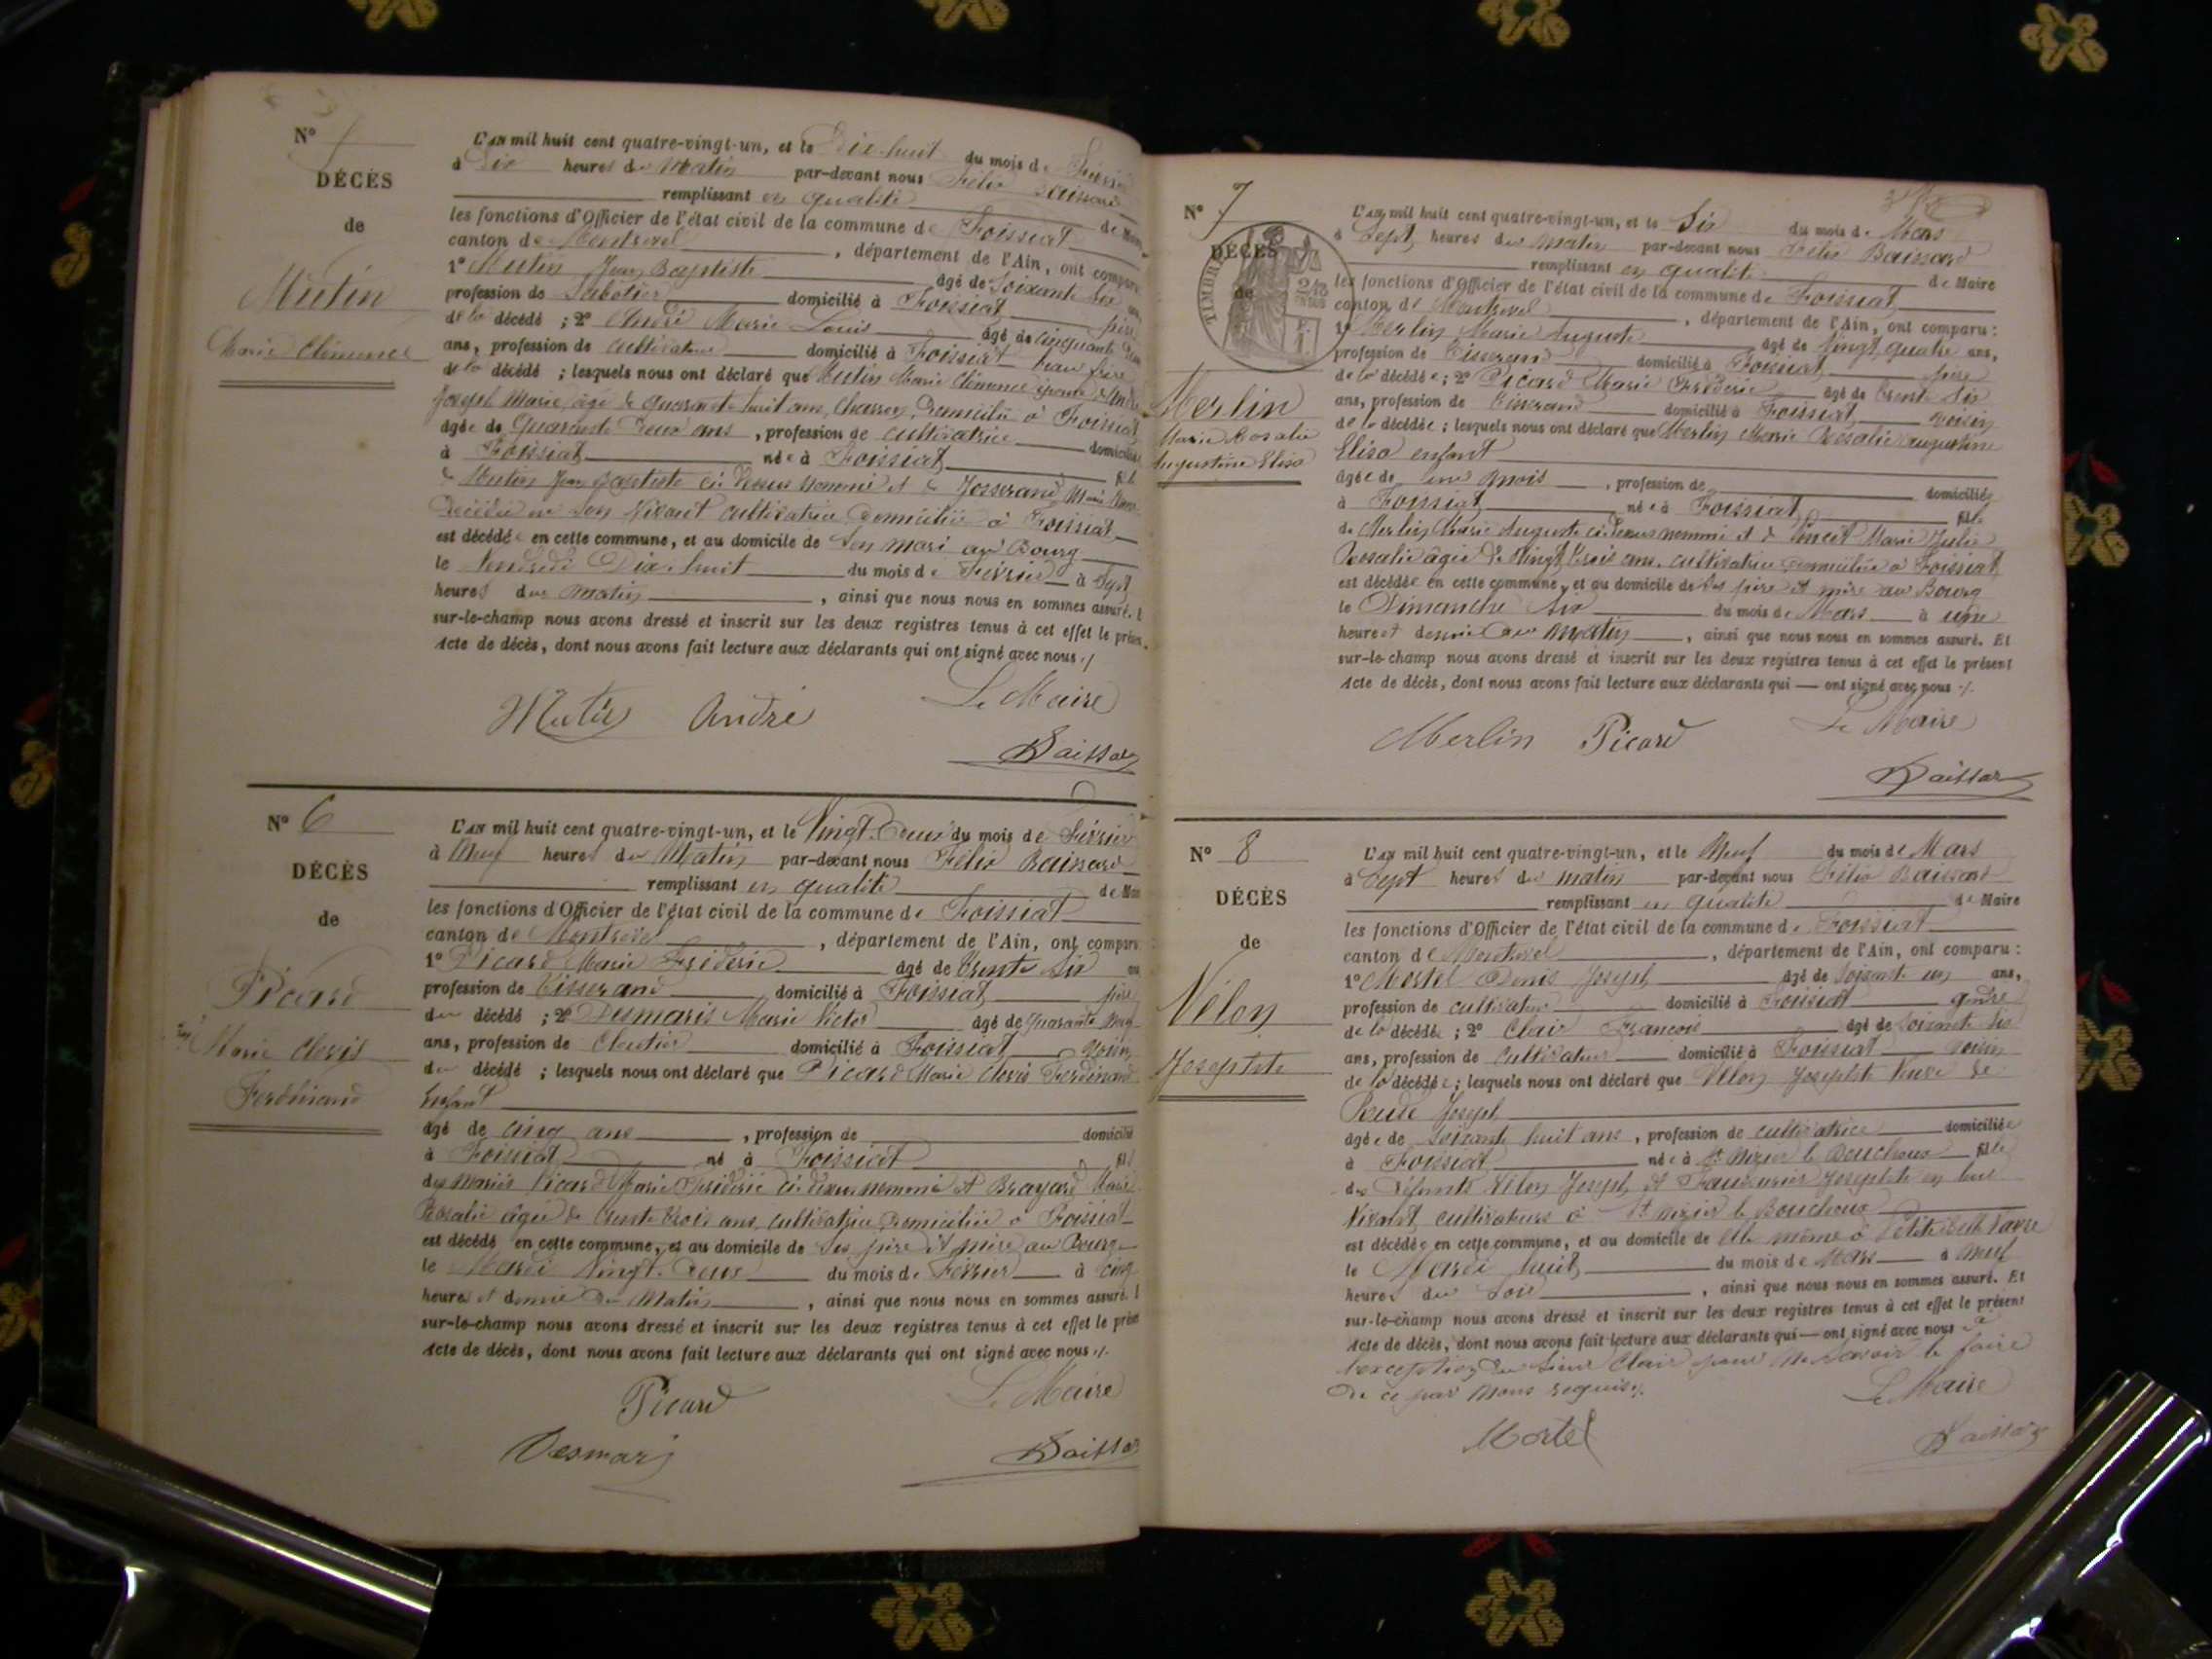 N°
DÉCÈS
de
Mutin
Marie Clémence
L'an mil huit cent quatre-vingt-un, et le Dix-huit du mois de Février
à Dix heures du Matin par-devant nous Félix Baissard
remplissant en qualité de Maire
les fonctions d'Officier de l'état civil de la commune de Foissiat
canton de Montrevel, département de l'Ain, ont comparu
1° Mutin Jean Baptiste âgé de Soixante Six
profession de Sabotier domicilié à Foissiat père
de la décédé ; 2° André Marie Louis âgé de Cinquante
ans, profession de Cultivateur domicilié à Foissiat beau frère
de la décédé ; lesquels nous ont déclaré que Mutin Marie Clémence épouse André
Joseph Marie âgé de quarante huit ans, domicilié à Foissiat
âgée de Quarante Deux ans, profession de cultivatrice domiciliée
à Foissiat née à Foissiat fille
de Mutin Jean Baptiste ci-dessus nommé et de Josserand Marie
Décédée en son Vivant cultivatrice domiciliée à Foissiat
est décédée en cette commune, et au domicile de son mari au Bourg
le Vendredi Dix-huit du mois de Février à Sept
heures du matin, ainsi que nous nous en sommes assuré. E
sur-le-champ nous avons dressé et inscrit sur les deux registres tenus à cet effet le présen
Acte de décès, dont nous avons fait lecture aux déclarants qui ont signé avec nous ./
Mutin André Le Maire
Baissard
N° 6
DÉCÈS
de
Picard
Marie Clovis
Ferdinand
L'an mil huit cent quatre-vingt-un, et le Vingt-Deux du mois de Février
à Neuf heures du Matin par-devant nous Félix Baissard
remplissant en qualité de Mai
les fonctions d'Officier de l'état civil de la commune de Foissiat
canton de Montrevel, département de l'Ain, ont comparu
1° Picard Marie Fréderic âgé de Trente Six an
profession de Tisserand domicilié à Foissiat père
du décédé ; 2° Desmaris Marie Victor âgé de Quarante Neuf
ans, profession de Cloutier domicilié à Foissiat Voisin
du décédé ; lesquels nous ont déclaré que Picard Marie Clovis Ferdinand
Enfant
âgé de cinq ans, profession de domicilié
à Foissiat né à Foissiat fils
des mariés Picard Marie Fréderic ci-dessus nommé et Brayard Marie
Rosalie âgée de Trente trois ans, cultivatrice domiciliée à Foissiat
est décédé en cette commune, et au domicile de ses père et mère au Bourg
le Mardi Vingt-Deux du mois de Février à cinq
heures et demie du Matin, ainsi que nous nous en sommes assuré. E
sur-le-champ nous avons dressé et inscrit sur les deux registres tenus à cet effet le prése
Acte de décès, dont nous avons fait lecture aux déclarants qui ont signé avec nous ./.
Picard Le Maire
Desmaris Baissard
N° 7
DÉCÈS
de
TIMBRE
Merlin
Marie Rosalie
Augustine Elisa
L'an mil huit cent quatre-vingt-un, et le Six du mois de Mars
à Sept heures du matin par-devant nous Félix Baissard
remplissant en qualité de Maire
les fonctions d'Officier de l'état civil de la commune de Foissiat
canton de Montrevel, département de l'Ain, ont comparu :
1° Merlin Marie Auguste âgé de Vingt quatre ans,
profession de Tisserand domicilié à Foissiat père
de la décédée ; 2° Picard Marie Fréderic âgé de Trente Six
ans, profession de Tisserand domicilié à Foissiat voisin
de la décédée ; lesquels nous ont déclaré que Merlin Marie Rosalie Augustine
Elisa enfant
âgée de un mois, profession de domiciliée
à Foissiat née à Foissiat fille
de Merlin Marie Auguste ci-dessus nommé et de Poncet Marie Julie
Rosalie âgée de Vingt trois ans, cultivatrice domiciliée à Foissiat
est décédée en cette commune, et au domicile de ses père et mère au Bourg
le Dimanche six du mois de Mars à une
heure et demie du matin, ainsi que nous nous en sommes assuré. Et
sur-le-champ nous avons dressé et inscrit sur les deux registres tenus à cet effet le présent
Acte de décès, dont nous avons fait lecture aux déclarants qui — ont signé avec nous ./.
Merlin Picard Le Maire
Baissard
N° 8
DÉCÈS
de
Vélon
Josephte
L'an mil huit cent quatre-vingt-un, et le Neuf du mois de Mars
à Sept heures du matin par-devant nous Félix Baissard
remplissant en qualité de Maire
les fonctions d'Officier de l'état civil de la commune de Foissiat
canton de Montrevel, département de l'Ain, ont comparu :
1° Mortel Denis Joseph âgé de Soixante un ans,
profession de cultivateur domicilié à Foissiat gendre
de la décédée ; 2° Clair François âgé de soixante six
ans, profession de Cultivateur domicilié à Foissiat voisin
de la décédée ; lesquels nous ont déclaré que Vélon Josephte Veuve de
Joseph
âgée de soixante huit ans, profession de cultivatrice domiciliée
à Foissiat née à St Nizier le Bouchoux fille
des Défunts Vélon Joseph et Josephte en leur
Vivant cultivateurs à St Nizier le Bouchoux
est décédée en cette commune, et au domicile de elle même à
le Mardi huit du mois de Mars à neuf
heures du Soir, ainsi que nous nous en sommes assuré. Et
sur-le-champ nous avons dressé et inscrit sur les deux registres tenus à cet effet le présent
Acte de décès, dont nous avons fait lecture aux déclarants qui — ont signé avec nous à
l'exception du sieur Clair pour ne savoir le faire
de ce par nous requis ./.
Le Maire
Mortel Baissard